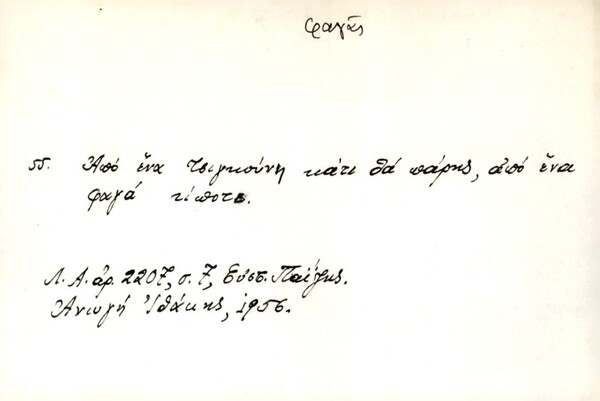 φαγᾶς
55. Ἀπό ἕνα τσιγκούνη κάτι θά πάρῃς, ἀπό ἕνα
φαγᾶ τίποτε.
Λ. Α. ἀρ. 2207, σ. 7, Εὐστ. Παΐζης.
Ἀνωγή Ἰθάκης, 1956.